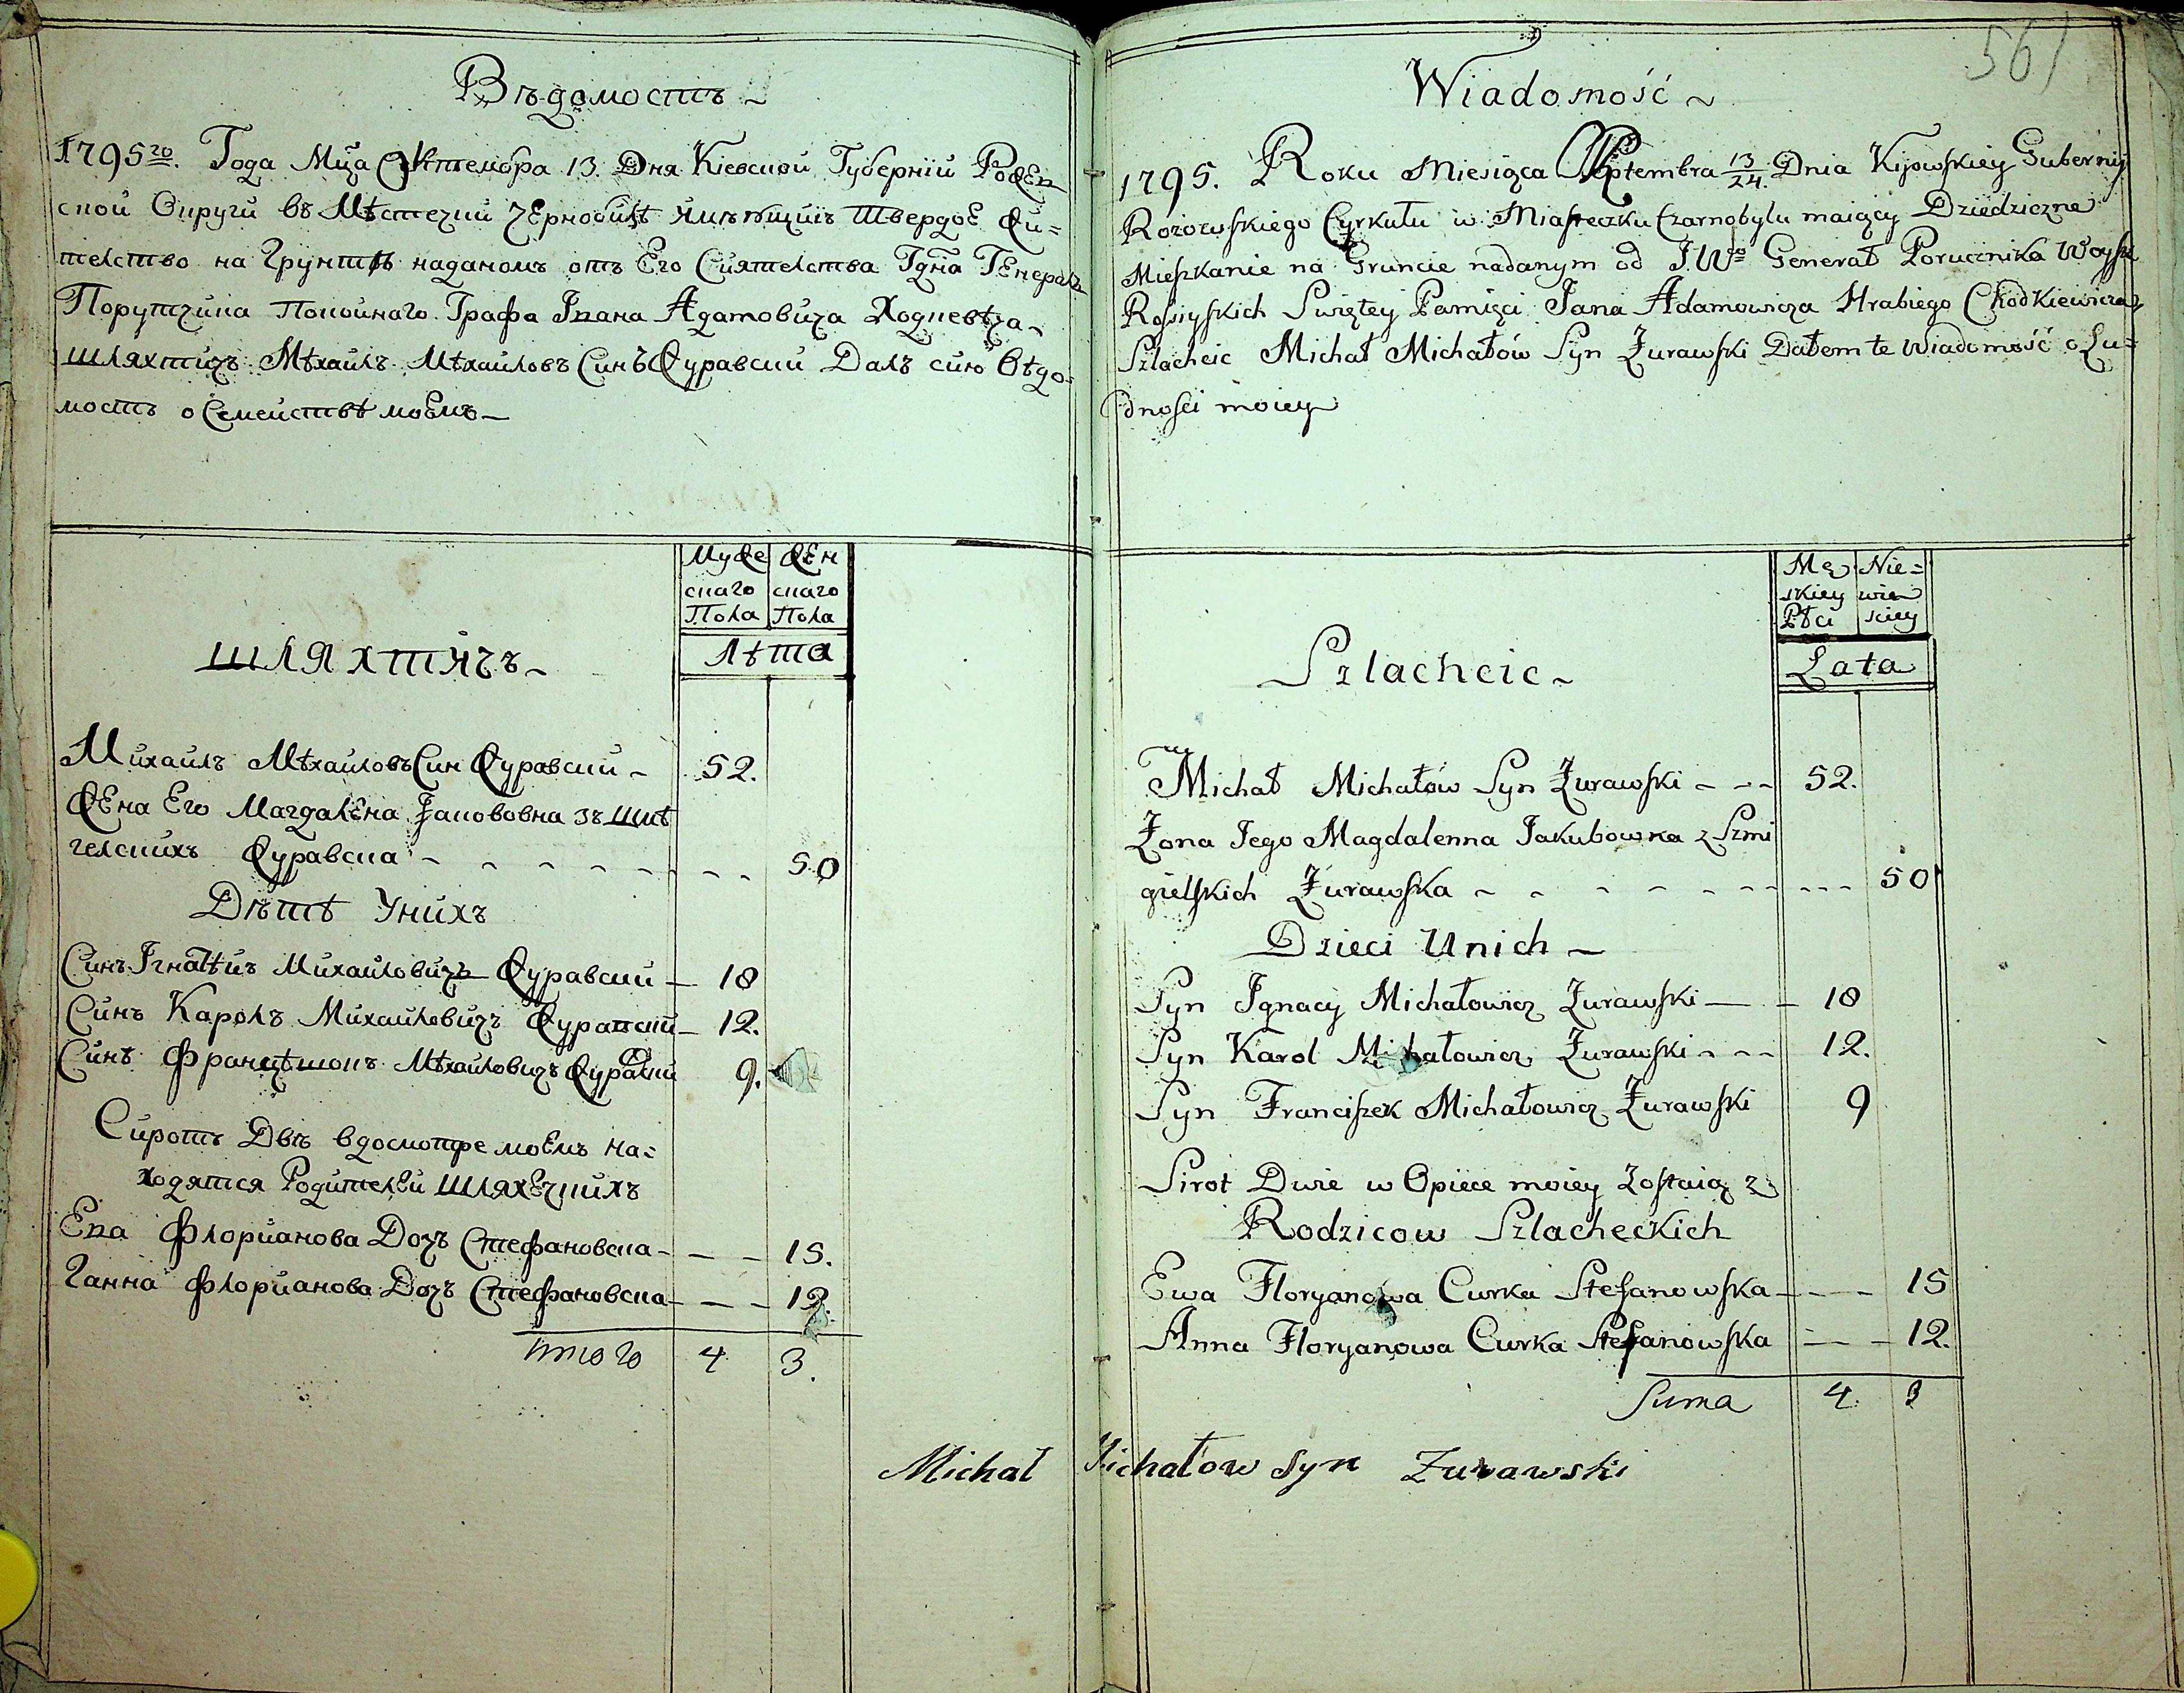 Вѣдомость
1795го. Года Мца Октембра 13. Дня Кіевской Губерній Рожев
ской Округи въ Мѣстечки Чернобилѣ имѣющій Твердое Жи=
телство на Грунтѣ наданомъ отъ Его Сиятелства Гдна Генерал
Порутчика Покойнаго Графа Івана Адамовича Ходкевѣча
Шляхтичъ Мѣхаилъ Мѣхаиловъ Синъ Журавский Далъ сию вѣдо=
мость о Семействѣ моемъ
Муже Жен
скаго скаго
Пола Пола
Лѣта
Шляхтичъ
Михаилъ Мѣхаиловъ Син Журавский 52.
Жена Его Магдалена Якововна зъ Шмѣ
гелскихъ Журавска 50
Дѣтѣ Унихъ
Синъ Ігнатѣй Михайловичъ Журавский 18
Синъ Каролъ Михайловичъ Журавский 12.
Синъ Францѣшокъ Мѣхайловичъ Журавский 9.
Сиротъ Двѣ вдосмотре моемъ на=
ходятся Родителей Шляхецкихъ
Ева Флорианова Дочъ Стефановска 15.
Ганна Флорианова Дочъ Стефановска 12.
итого 4 3.
561
Wiadomość
1795. Roku Miesiąca 7ptembra 13/24. Dnia Kijowskiey Gubernij
Rożowskiego Cyrkułu w Miasteczku Czarnobylu maiący Dziedziczne
Mieszkanie na Gruncie nadanym od J.Wgo Generał Porucznika Woysk
Rossyiskich Swiętey Pamięci Jana Adamowicza Hrabiego Chodkiewicza
Szlachcic Michał Michałów Syn Żurawski Dałem te Wiadomość o Lu=
dności moiey
Mę Nie=
skiey wie
Płci skiey
Lata
Szlachcic
Michał Michałów Syn Żurawski 52.
Żona Jego Magdalenna Jakubowna z Szmi
gielskich Żurawska 50
Dzieci Unich
Syn Ignacy Michałowicz Żurawski 18
Syn Karol Michałowicz Żurawski 12.
Syn Franciszek Michałowicz Żurawski 9
Sirot Dwie w Opiece moiey Zostaią z
Rodzicow Szlacheckich
Ewa Floryanowa Curka Stefanowska 15
Anna Floryanowa Curka Stefanowska 12.
Suma 4. 3
Michał Michałow syn Żurawski